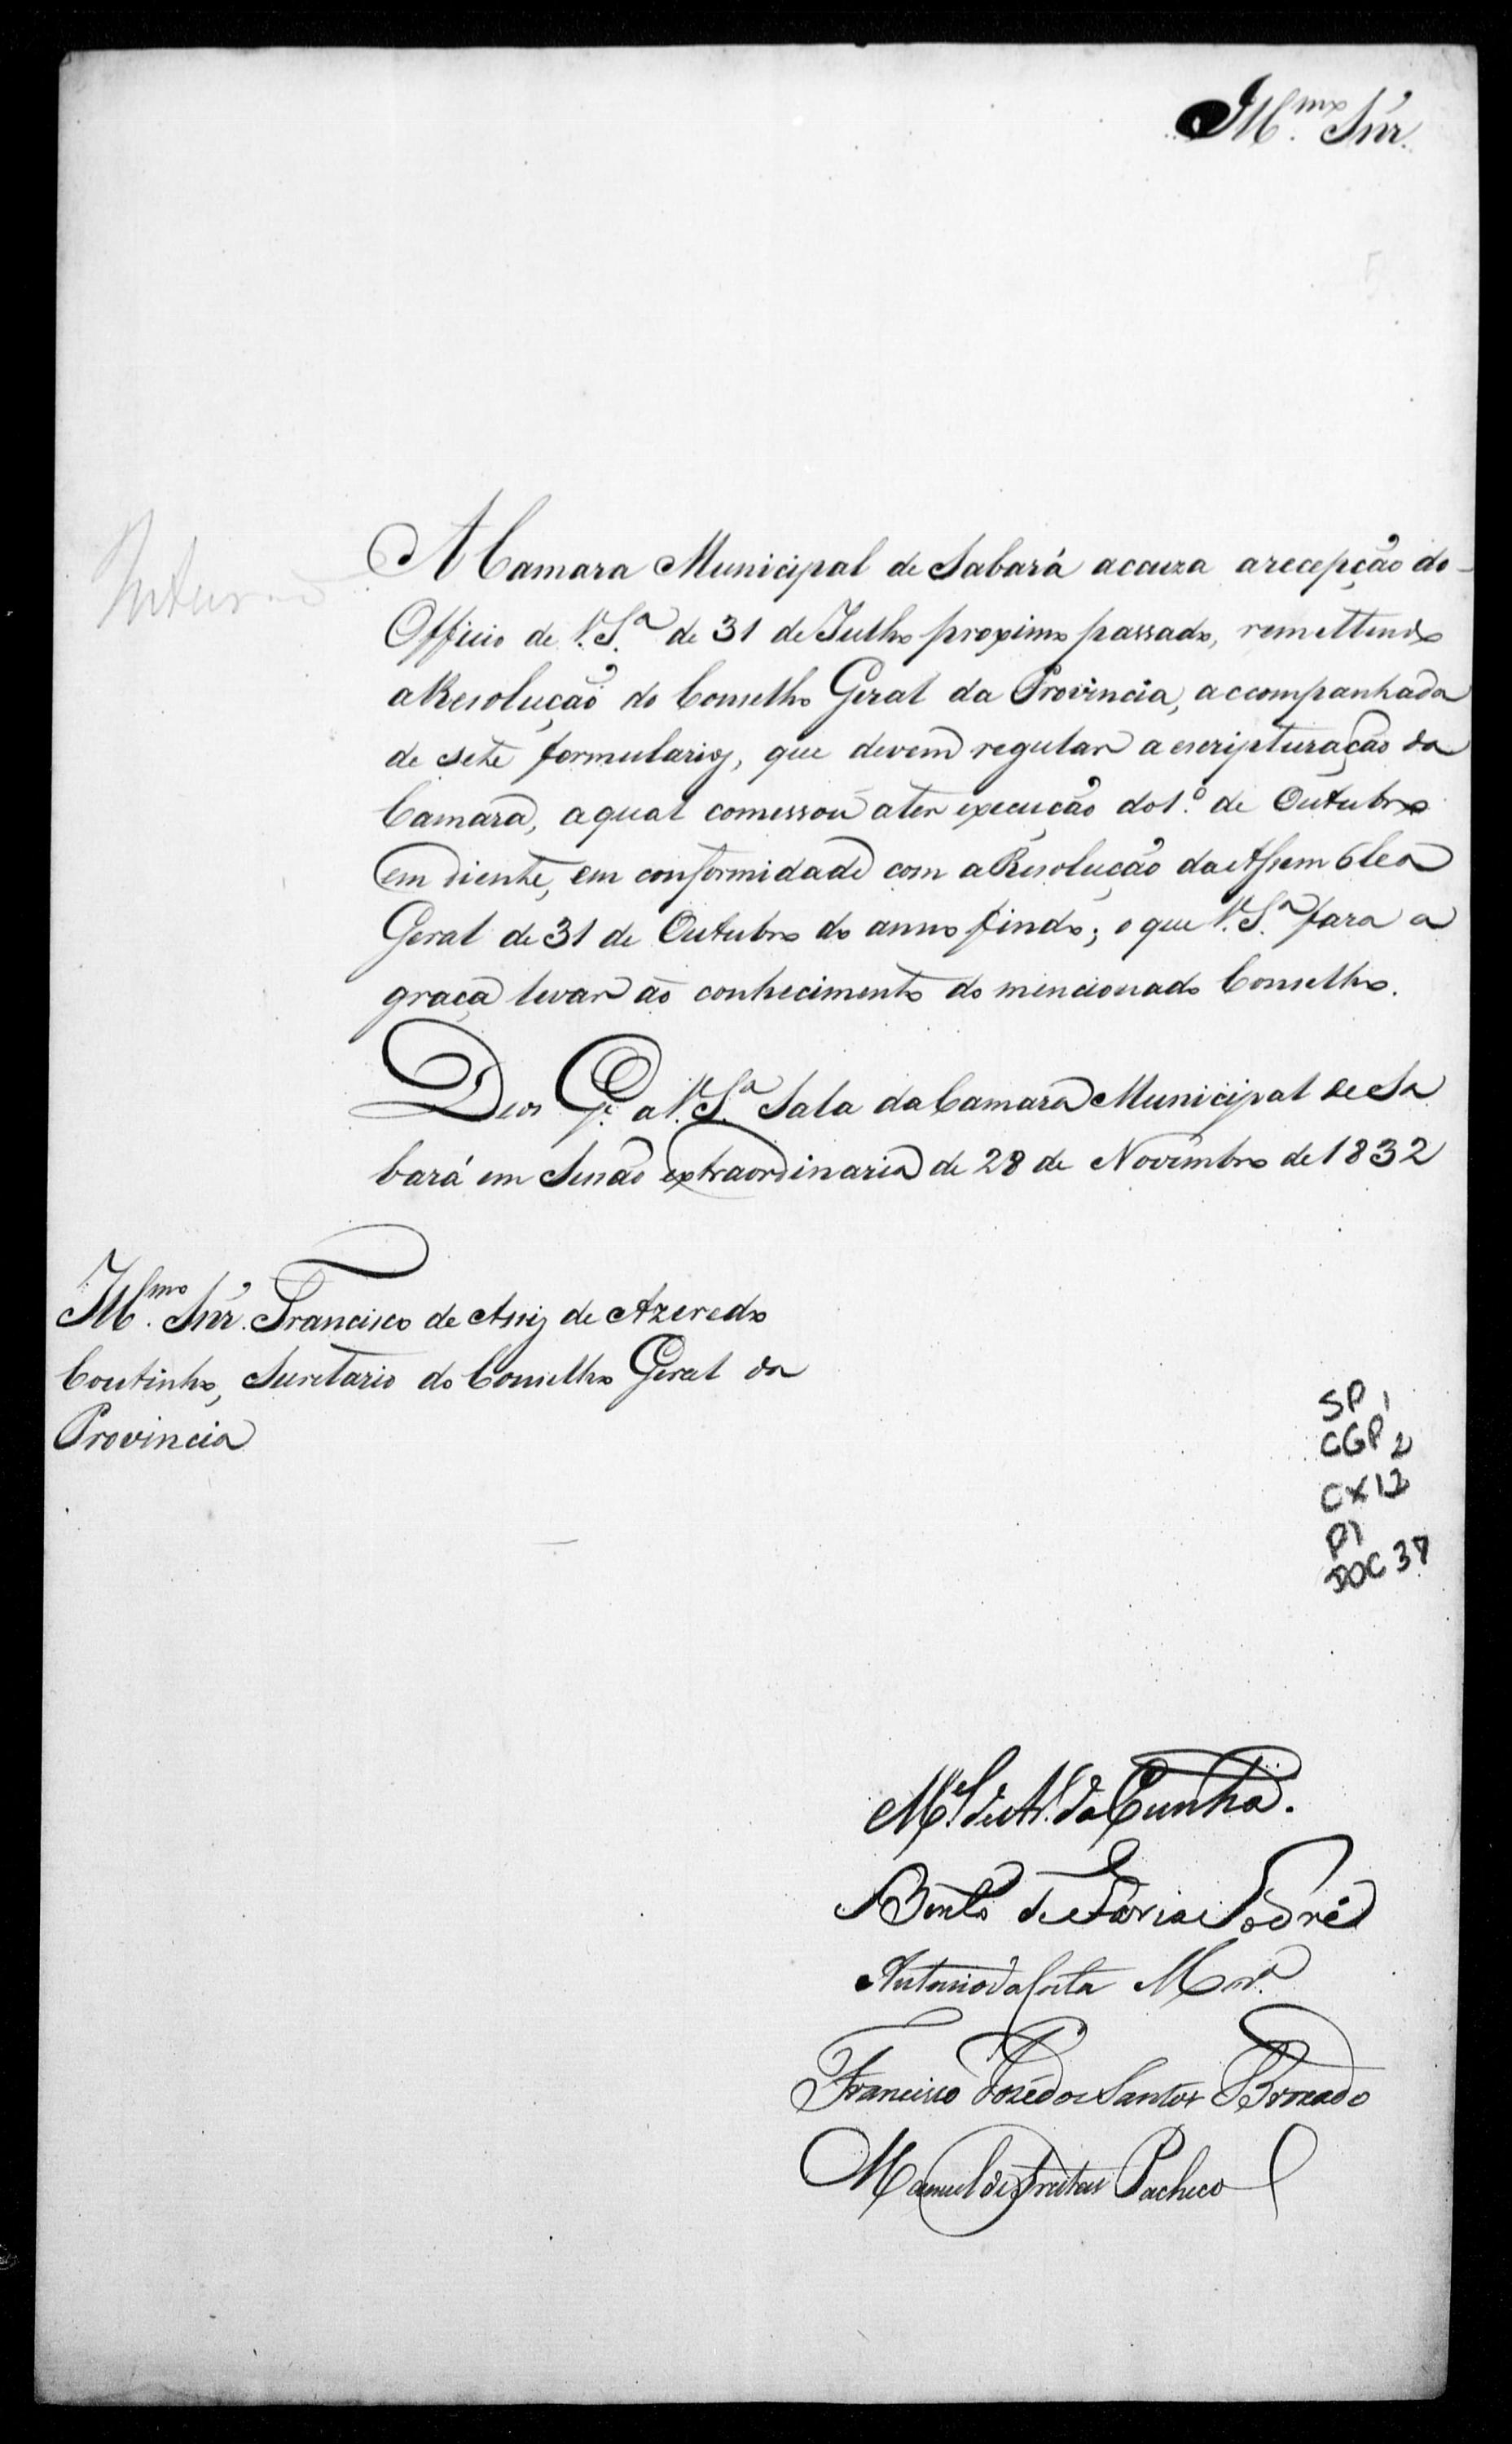 Illmo. Snr.
A Camara Municipal de Sabará acauza arecepção do
Officio de V.Sª. de 31 de Julho proximo passado, remettendo
aResolução do Conselho Geral da Provincia, accompanhada
de sete formularios, que devem regular a escripturação da
Camara, aqual comessou ater execução do 1º. de Outubro
em diente, em conformidade com aResolução da Assemblea
Geral de 31 de Outubro do anno findo; o que V.Sª. fara a
graça levar ao conhecimento do mencionado Conselho.
Deos Gᵉ. a V.Sª. Sala da Camara Municipal de Sa
bará em Sessão extraordinaria de 28 de Novembro de 1832
Illmo. Snr. Francisco de Assiz de Azeredo
Coutinho, Secretario do Conselho Geral da
Provincia
SP 1
CGP 2
CX 12
P1
DOC 37
Mel. da Cunha.
Bento de Faria Sodré
Antonio da Costa Mrª.
Francisco Jozé dos Santos Brochado
Manuel de Freitas Pacheco